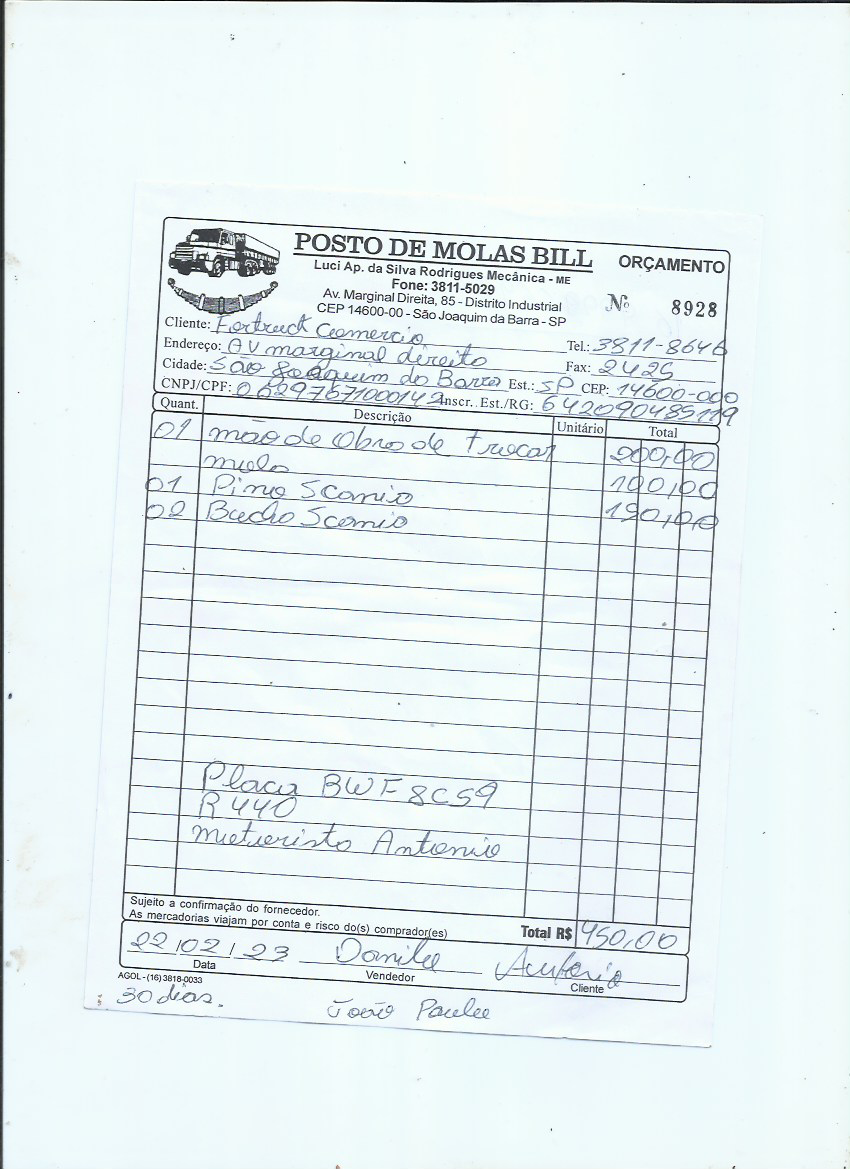 POSTO DE MOLAS BILL
ORÇAMENTO
Luci Ap. da Silva Rodrigues Mecânica - ME
Fone: 3811-5029
Av. Marginal Direita, 85 - Distrito Industrial
CEP 14600-00 - São Joaquim da Barra - SP
Nº 8928
Cliente: Fortruck Comercio
Tel.: 3811-8646
Endereço: AV marginal direito
Fax: 2425
Cidade: São Joaquim da Barra Est.: SP CEP: 14600-000
CNPJ/CPF: 06297671000142 Inscr. Est./RG: 642090485119
Quant. Descrição Unitário Total
01 mão de obra de trocar 200,00
mola
01 Pino Scania 100,00
02 Bucha Scania 150,00
Placa BWF 8C59
R 440
motorista Antonio
Sujeito a confirmação do fornecedor.
As mercadorias viajam por conta e risco do(s) comprador(es)
Total R$ 450,00
22/02/23 Danilo Antonio
Data Vendedor Cliente
AGOL - (16) 3818-0033
30 dias.
João Paulo